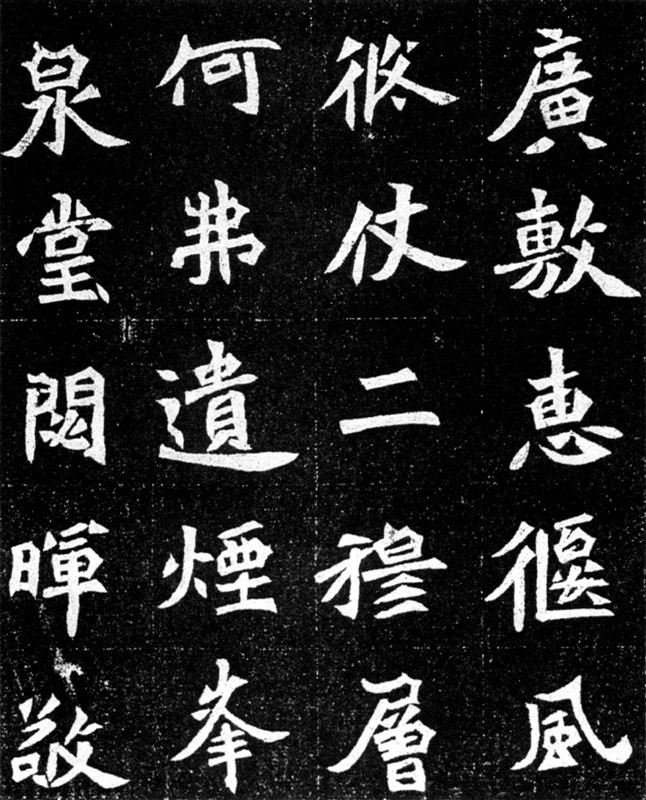 廣敷恵偃風
脩仗二穆層
何弗遺煙峯
泉堂閟暉敬